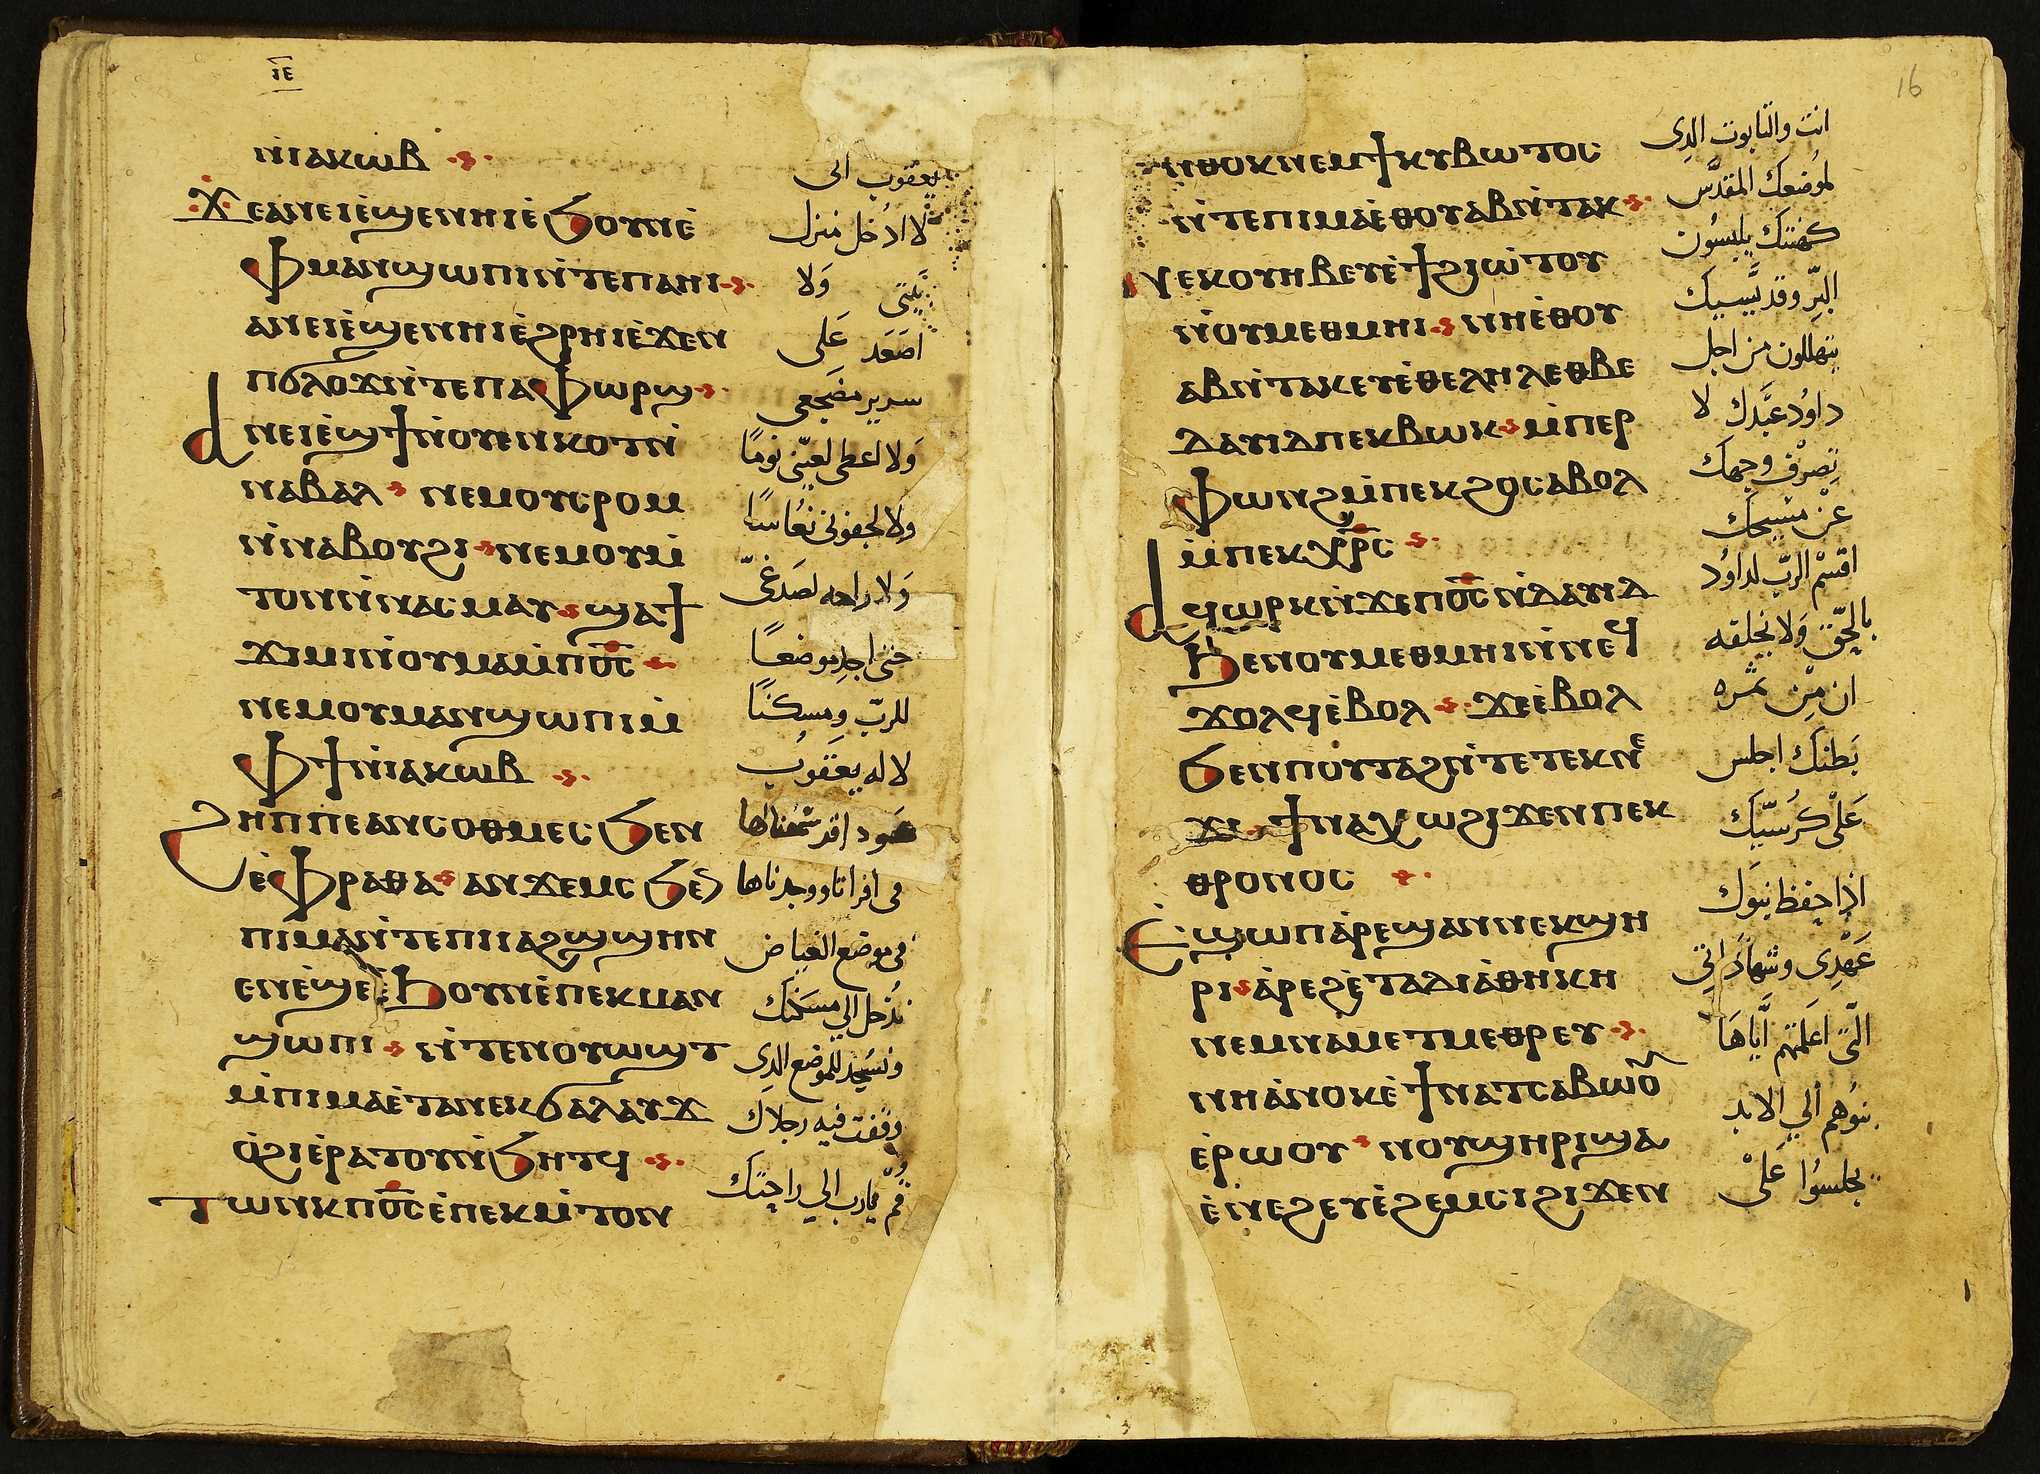 ⲓ̅ⲉ̅
ⲛ̀ⲓⲁⲕⲱⲃ
ϫⲉⲁⲛⲉⲓⲉ̀ϣⲉⲛⲏⲓⲉ̀ϧⲟⲩⲛⲉ̀
ⲫⲙⲁⲛϣⲱⲡⲓⲛ̀ⲧⲉⲡⲁⲏⲓ
ⲁⲛⲉⲓⲉ̀ϣⲉⲛⲏⲓⲉ̀ϩⲣⲏⲓⲉ̀ϫⲉⲛ
ⲡϭⲗⲟϫⲛ̀ⲧⲉⲡⲁⲫⲱⲣϣ
ⲁⲛⲉⲓⲉ̀ϣϯⲛ̀ⲟⲩⲉⲛⲕⲟⲧⲛ̀
ⲛⲁⲃⲁⲗ ⲛⲉⲙⲟⲩϩⲣⲟⲙ
ⲛ̀ⲛⲁⲃⲟⲩϩⲓ ⲛⲉⲙⲟⲩⲙ̀
ⲧⲟⲛⲛ̀ⲛⲁⲥⲙⲁⲩ ϣⲁϯ
ϫⲓⲙⲓⲛ̀ⲟⲩⲙⲁⲙ̀ⲡⲟ̅ⲥ̅
ⲛⲉⲙⲟⲩⲙⲁⲛϣⲱⲡⲓⲙ̀
ⲫϯⲛ̀ⲓⲁⲕⲱⲃ
ϩⲏⲡⲡⲉⲁⲛⲥⲟⲑⲙⲉⲥϧⲉⲛ
ⲉ̀ⲫⲣⲁⲑⲁ ⲁⲛϫⲉⲙⲥϧⲉⲛ
ⲡⲓⲙⲁⲛ̀ⲧⲉⲡⲓⲓⲁϩϣϣⲏⲛ
ⲉⲛⲉ̀ϣⲉ ⲉ̀ϧⲟⲩⲛⲉ̀ⲡⲉⲕⲙⲁⲛ
ϣⲱⲡⲓ ⲛ̀ⲧⲉⲛⲟⲩⲱϣⲧ
ⲙ̀ⲡⲓⲙⲁⲉ̀ⲧⲁⲛⲉⲕϭⲁⲗⲁⲩϫ
ⲟ̀ϩⲓⲉ̀ⲣⲁⲧⲟⲩⲛ̀ϧⲏⲧϥ
ⲧⲱⲛⲕⲡⲟ̅ⲥ̅ⲉ̀ⲡⲉⲕⲙ̀ⲧⲟⲛ
يعقوب الى
لا ادخل منزل
بيتى ولا
اصعد على
سرير مضجعى
ولا اعطى لعينى نومًا
ولا لجفونى نعُاسًا
ولا راحه لصدغىّ
حتى اجد موضعًا
للربّ ومسكنًا
لاله يعقوب
هودا قد سمعناها
فى افراتا ووجدناها
فى موضع الغياض
ندُخل الي مسكنك
ونسجد للموضع الدى
وقفت فيه رجلاك
قُم يارب الي راحتك
16
ⲛ̀ⲑⲟⲕⲛⲉⲙϯⲕⲩⲃⲱⲧⲟⲥ
ⲛ̀ⲧⲉⲡⲓⲙⲁⲉ̀ⲑⲟⲩⲁⲃⲛ̀ⲧⲁⲕ
ⲛⲉⲕⲟⲩⲏⲃⲉⲩⲉ̀ϯϩⲓⲱ̀ⲧⲟⲩ
ⲛ̀ⲟⲩⲙⲉⲑⲙⲏⲓ ⲛⲏⲉ̀ⲑⲟⲩ
ⲁⲃⲛ̀ⲧⲁⲕⲉⲩⲉ̀ⲑⲉⲗⲏⲗⲉⲑⲃⲉ
ⲇⲁⲩⲓⲇⲡⲉⲕⲃⲱⲕ ⲙ̀ⲡⲉⲣ
ⲫⲱⲛϩⲙ̀ⲡⲉⲕϩⲟⲥⲁⲃⲟⲗ
ⲙ̀ⲡⲉⲕⲭⲣ̅ⲥ̅
ⲁϥⲱⲣⲕⲛ̀ϫⲉⲡⲟ̅ⲥ̅ⲛ̀ⲇⲁⲩⲓⲇ
ϧⲉⲛⲟⲩⲙⲉⲑⲙⲏⲓⲛ̀ⲛⲉϥ
ϫⲟⲗϥⲉ̀ⲃⲟⲗ ϫⲉⲉ̀ⲃⲟⲗ
ϧⲉⲛⲡⲟⲩⲧⲁϩⲛ̀ⲧⲉⲧⲉⲕⲛⲉ
ϫⲓ ϯⲛⲁⲭⲱϩⲓϫⲉⲛⲡⲉⲕ
ⲑⲣⲟⲛⲟⲥ
ⲉ̀ϣⲱⲡⲁ̀ⲣⲉϣⲁⲛⲛⲉⲕϣⲏ
ⲣⲓ ⲁ̀ⲣⲉϩⲉ̀ⲧⲁⲇⲓⲁ̀ⲑⲏⲕⲏ
ⲛⲉⲙⲛⲁⲙⲉⲧⲙⲉⲑⲣⲉⲩ
ⲛⲏⲁ̀ⲛⲟⲕⲉ̀ϯⲛⲁⲧⲥⲁⲃⲱⲟⲩ
ⲉ̀ⲣⲱⲟⲩ ⲛⲟⲩϣⲏⲣⲓϣⲁ
ⲉ̀ⲛⲉϩⲉⲩⲉ̀ϩⲉⲙⲥⲓϩⲓϫⲉⲛ
انت والتابوت الدى
لموُضعك المقدَّس
كهنتك يلبسُون
البرّ وقديسيك
يتهللون من اجل
داوُد عبَدك لا
تصرْف وجهك
عن مسيحك
اقسم الربّ لداوُد
بالحقّ ولا يخلفه
ان من ثمره
بَطنك اجلس
عَلى كرُسيّك
اذا حفظ بنوك
عَهْدِى وشهَاداتى
الّتى اعلمتهم ايّاهَا
بنوُهم الي الابد
يجلسُوا عَلىْ